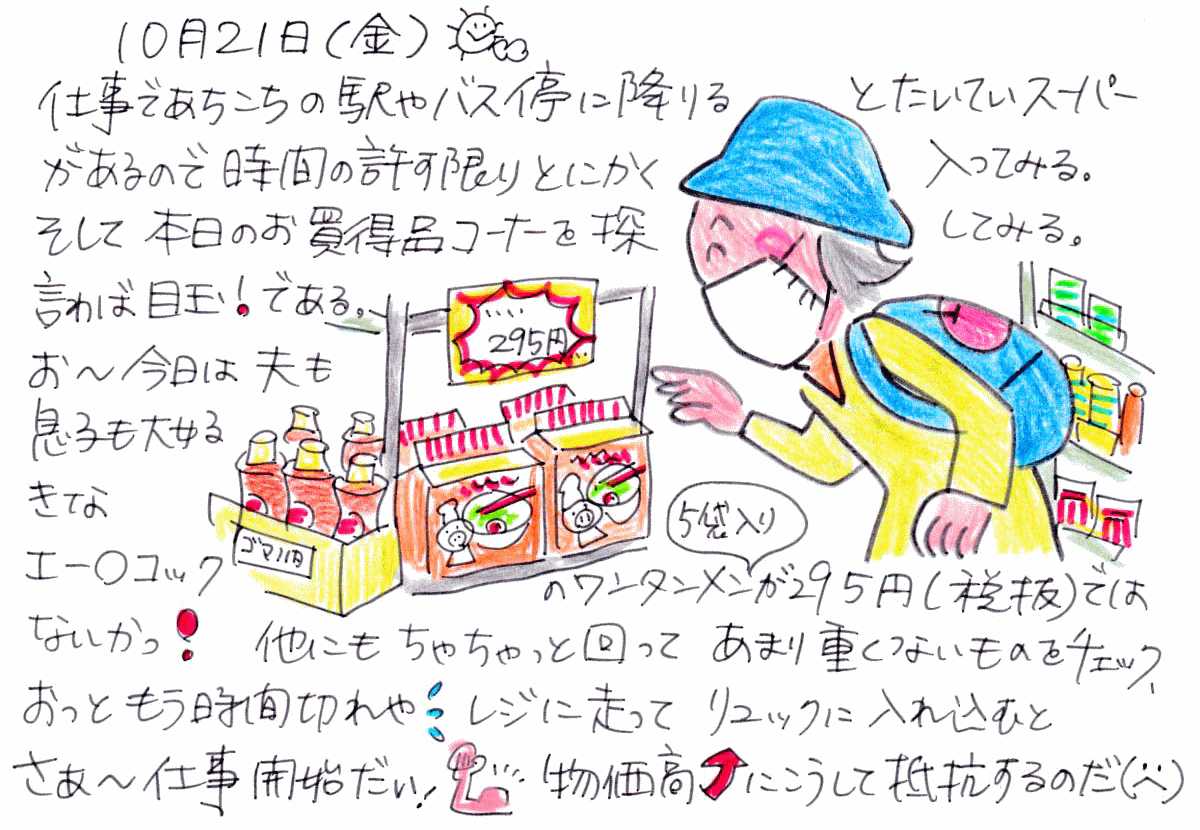 10月21日(金)
仕事であちこちの駅やバス停に降りる とたいていスーパー
があるので時間の許す限りとにかく 入ってみる。
そして本日のお買得品コーナーを探 してみる。
言わば目玉!である。
295円
お〜今日は夫も
息子も大好
きな
エー〇コック
ゴマ八円
5袋入り
のワンタンメンが295円(税抜)では
ないかっ! 他にもちゃちゃっと回って あまり重くないものをチェック、
おっともう時間切れや レジに走って リュックに入れ込むと
さあ〜仕事開始だい! 物価高にこうして抵抗するのだ(^^)